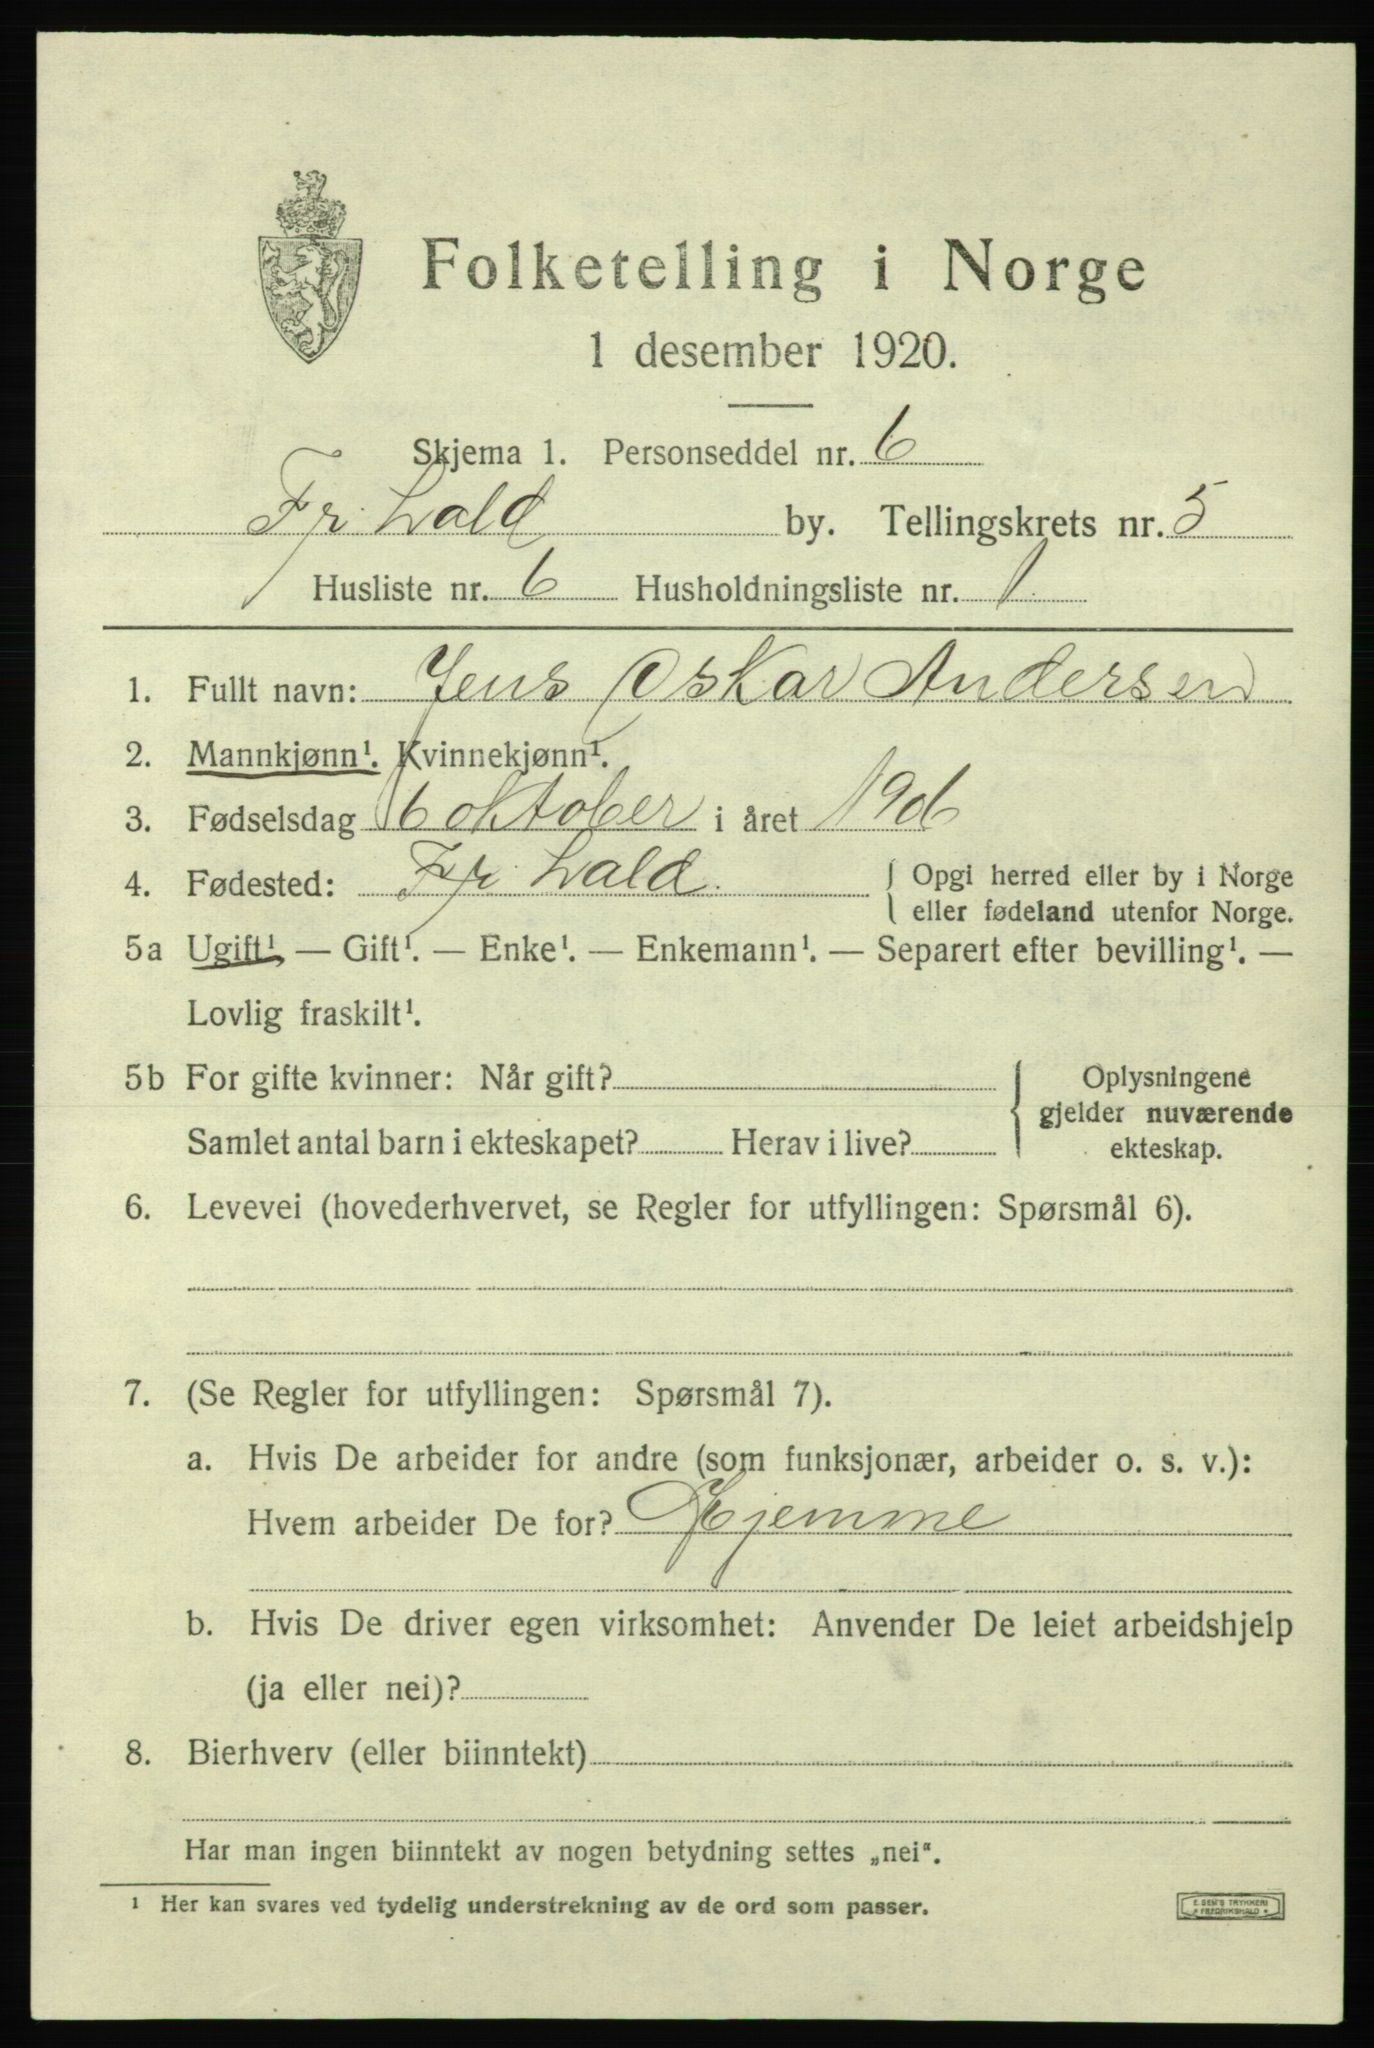 Folketelling i Norge
1 desember 1920.
Skjema 1. Personseddel nr. 6
Fr. hald by. Tellingskrets nr. 5
Husliste nr. 6 Husholdningsliste nr. 1
1. Fullt navn: Jens Oskar Andersen
2. Mannkjønn¹. Kvinnekjønn¹.
3. Fødselsdag 6 oktober i året 1906
4. Fødested: Fr. hald. { Opgi herred eller by i Norge
eller fødeland utenfor Norge.
5a Ugift¹. — Gift¹. — Enke¹. — Enkemann¹. — Separert efter bevilling¹. —
Lovlig fraskilt¹.
5b For gifte kvinner: Når gift? Oplysningene
gjelder nuværende
Samlet antal barn i ekteskapet? Herav i live? ekteskap.
6. Levevei (hovederhvervet, se Regler for utfyllingen: Spørsmål 6).
7. (Se Regler for utfyllingen: Spørsmål 7).
a. Hvis De arbeider for andre (som funksjonær, arbeider o. s. v.):
Hvem arbeider De for? Hjemme
b. Hvis De driver egen virksomhet: Anvender De leiet arbeidshjelp
(ja eller nei)?
8. Bierhverv (eller biinntekt)
Har man ingen biinntekt av nogen betydning settes „nei“.
¹ Her kan svares ved tydelig understrekning av de ord som passer.
E. SEM'S TRYKKERI
* FREDRIKSHALD *